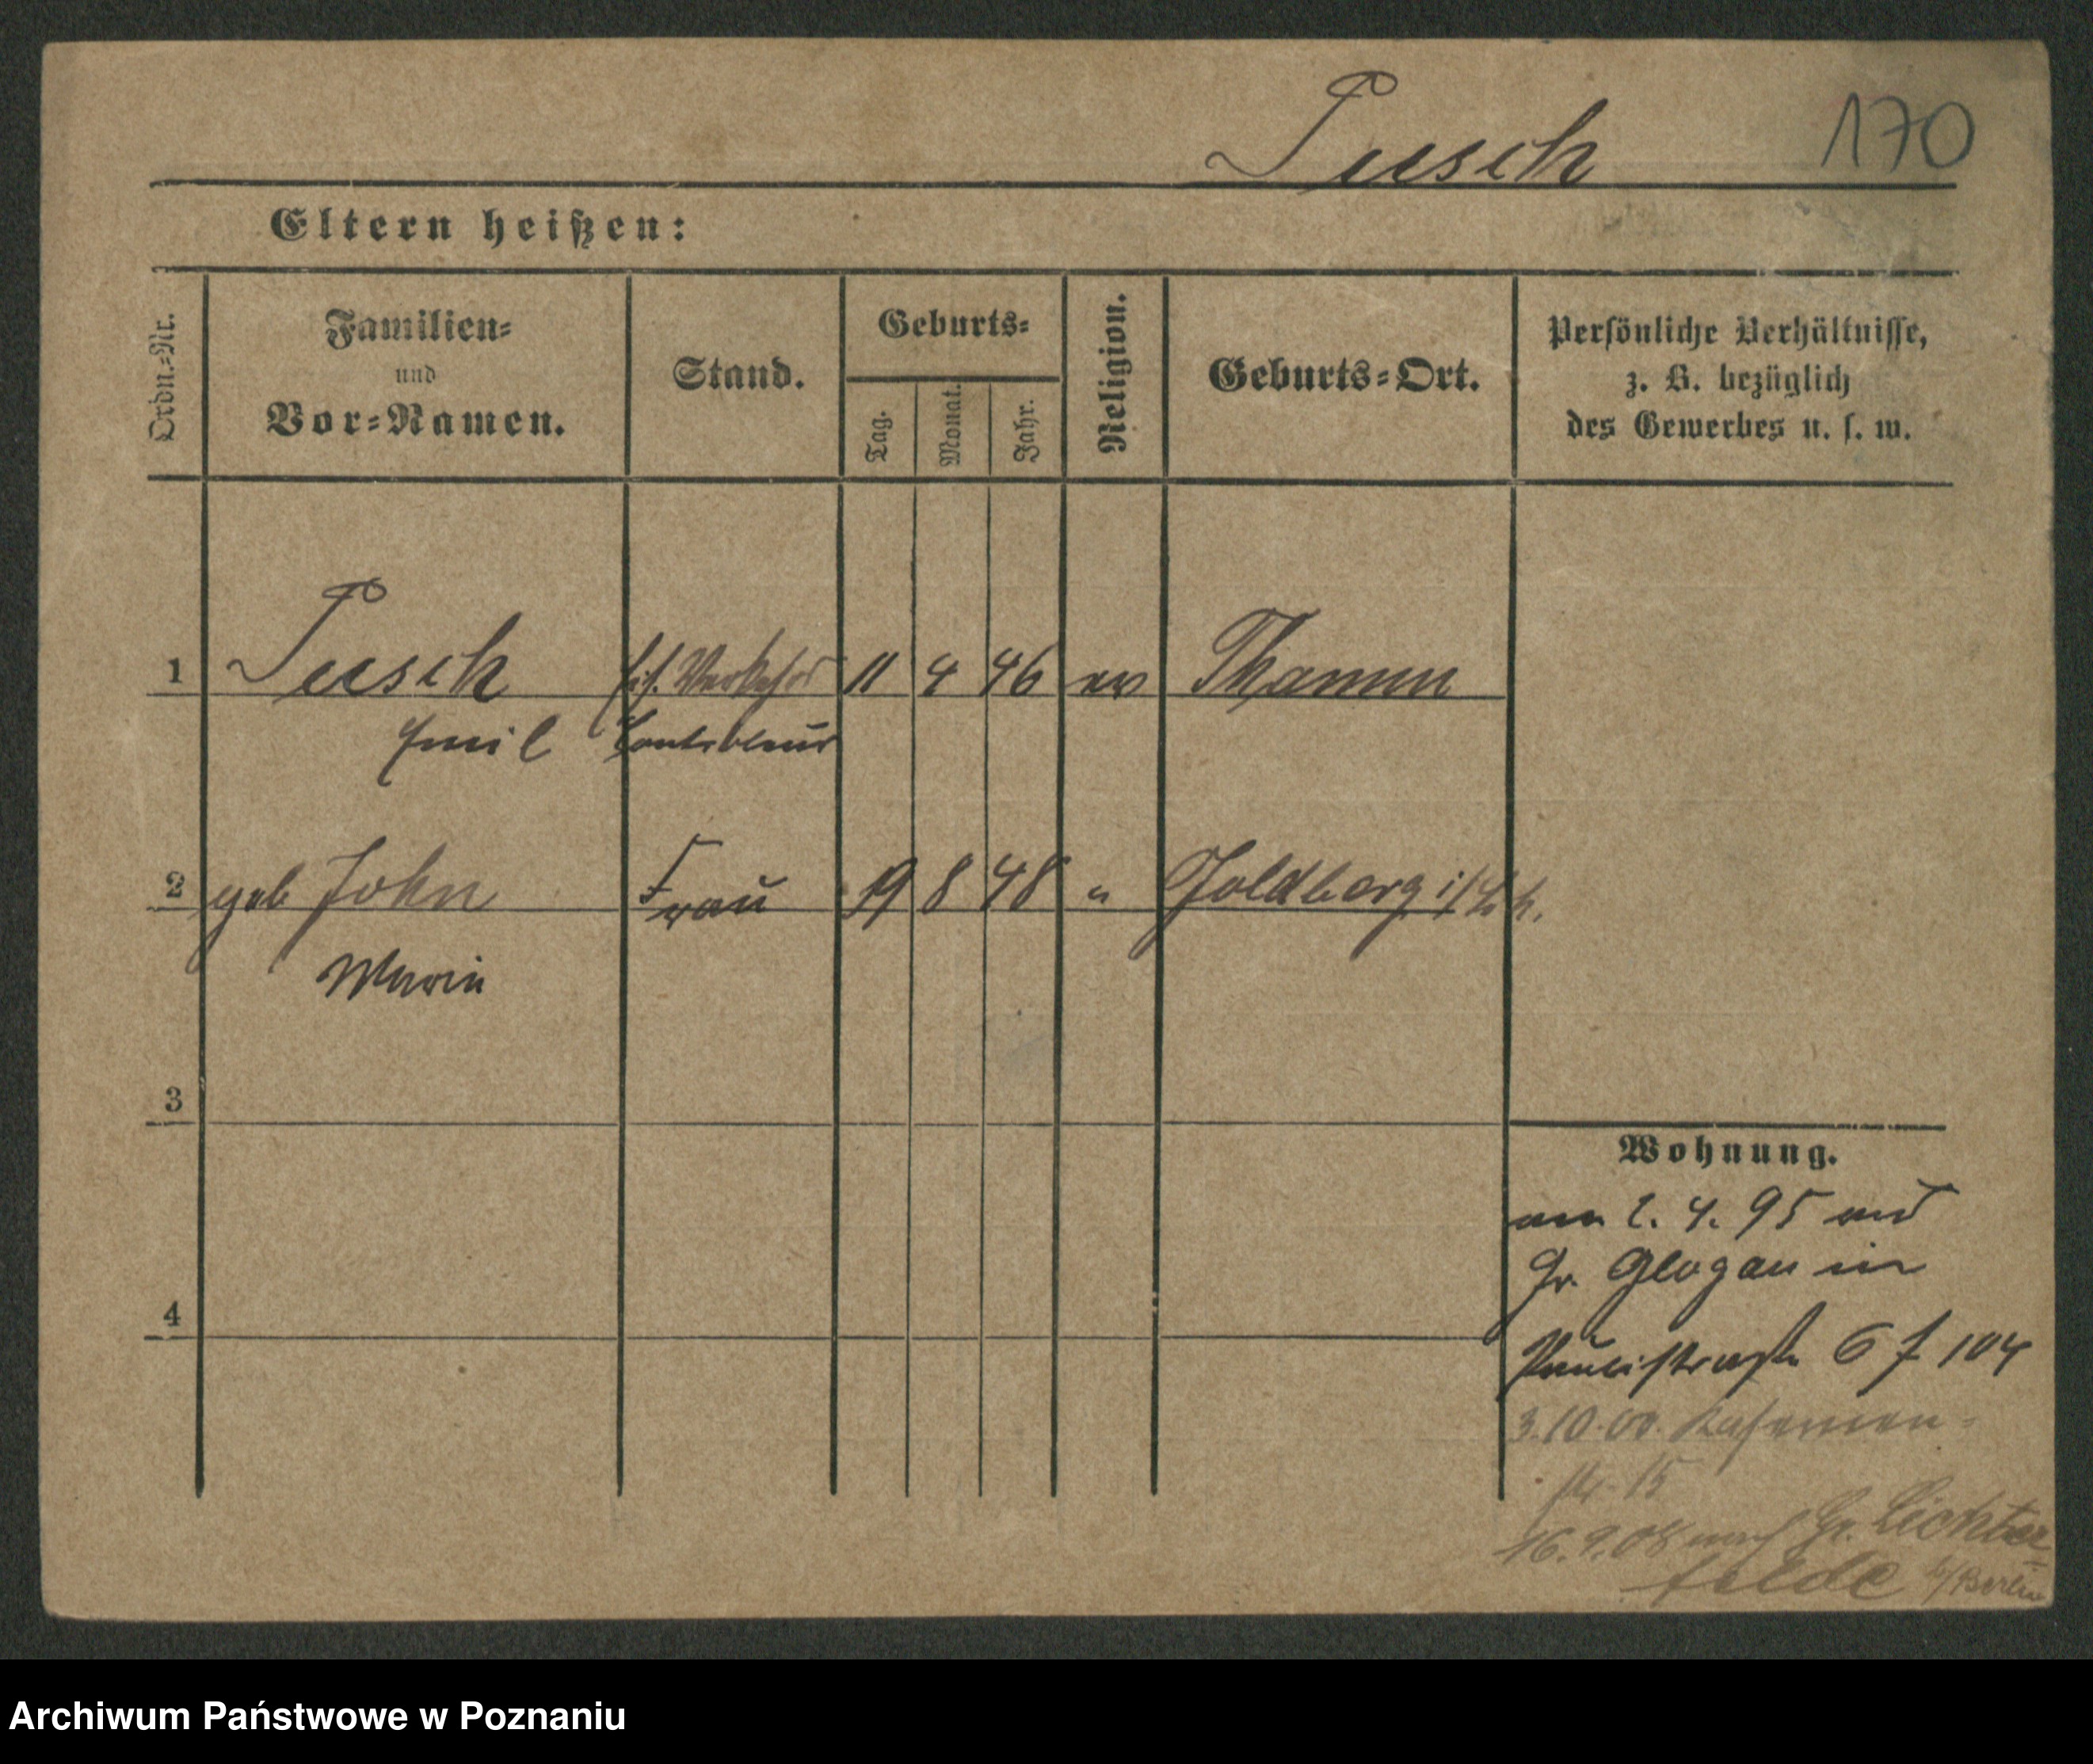 Pusch 170
Eltern heißen:
Ordn.-Nr.
Familien-
und
Vor-Namen.
Stand.
Geburts-
Tag.
Monat.
Jahr.
Religion.
Geburts-Ort.
Persönliche Verhältnisse,
z. B. bezüglich
des Gewerbes u. s. w.
1 Pusch Verkehrs 11 4 46 ev Thamm
Emil Controleur
2 geb John Frau 19 8 48 " Goldberg i/
Marie
3
4
Wohnung.
am 2. 4. 95 aus
Gr. Glogau in
Paulistraße 6 f 104
3.10.00. Kasernen-
str. 15
16.9.08 nach Gr. Lichter
felde b/Berlin
Archiwum Państwowe w Poznaniu